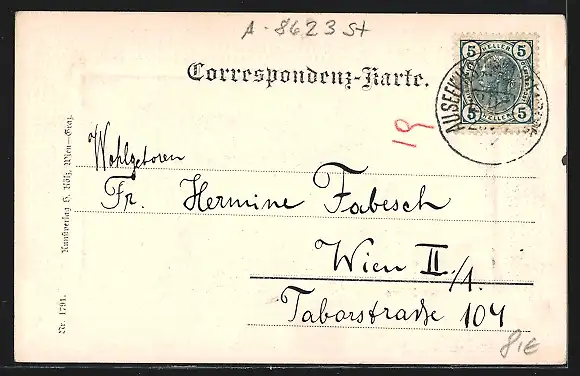 A-8623 St
Correspondenz-Karte.
5 HELLER 5
5 5
AUSSEE
19
Wohlgeboren
Fr. Hermine Fabesch
Wien II/1.
Taborstraße 104
Nr. 1791. Kunstverlag H. Wien—Graz.
8,-€